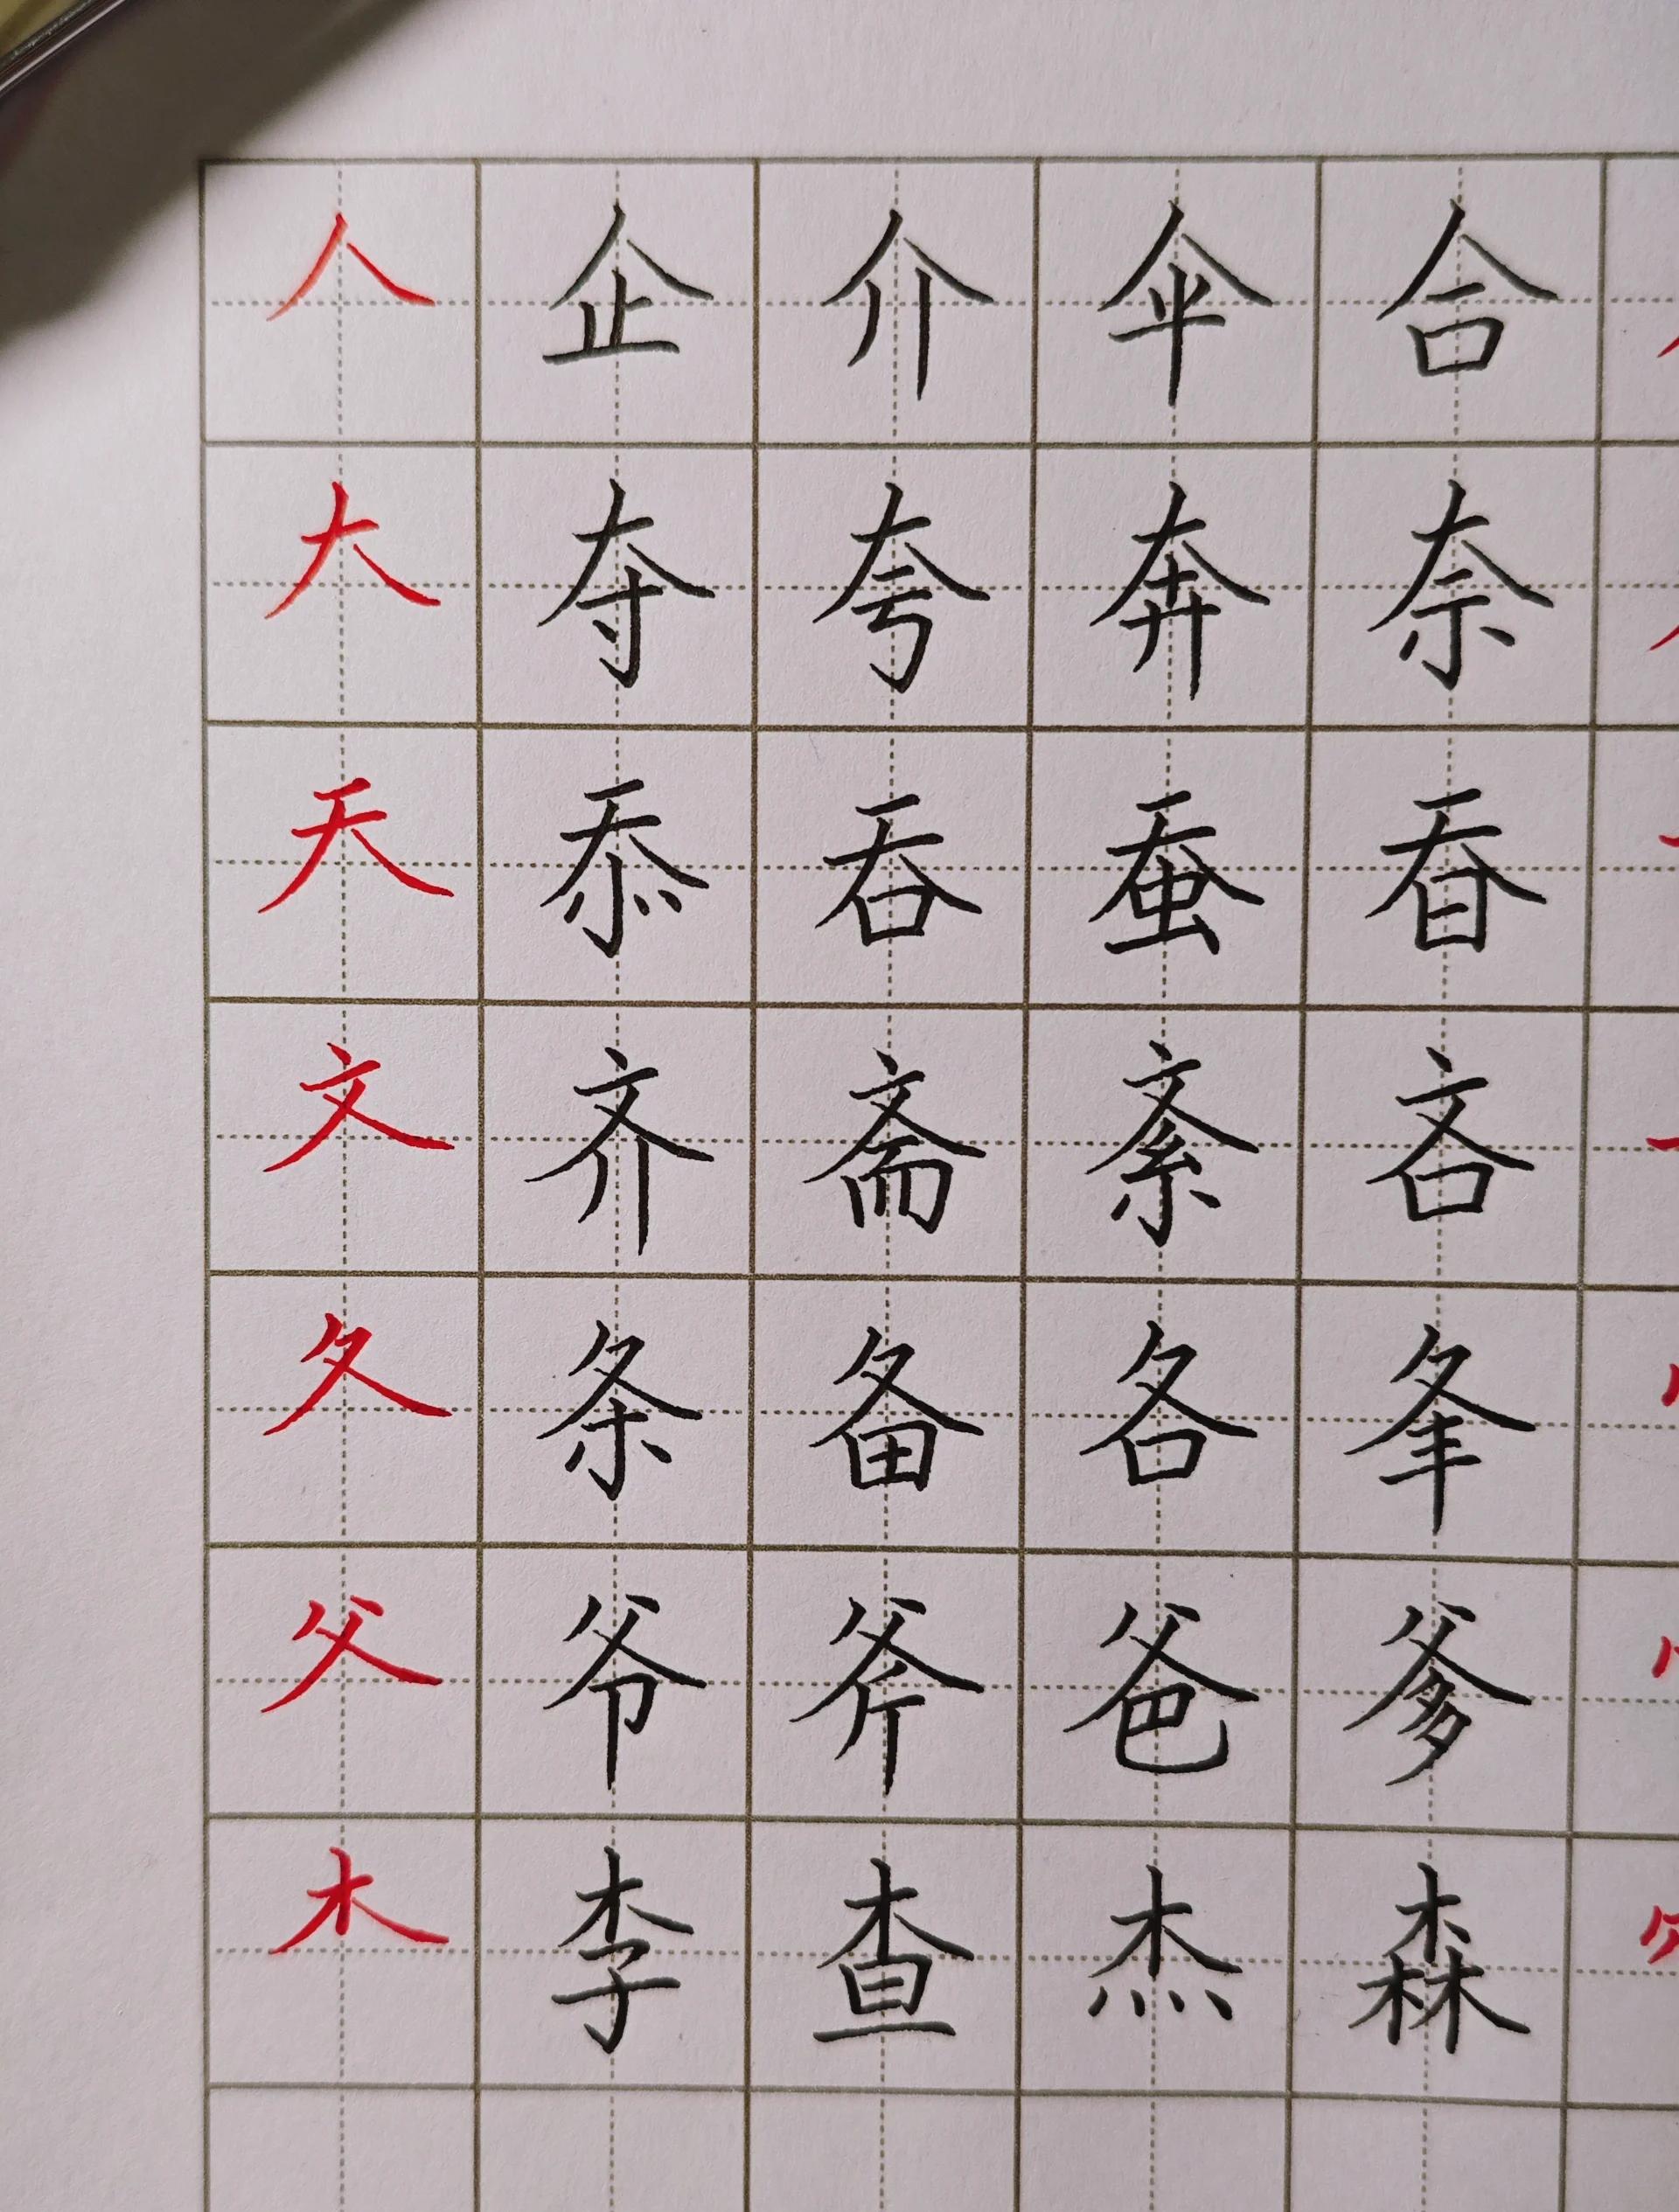 人 企 介 伞 合
大 夺 夸 奔 奈
天 忝 吞 蚕 昋
文 齐 斋 紊 吝
夂 条 备 各 夆
父 爷 斧 爸 爹
木 李 查 杰 森